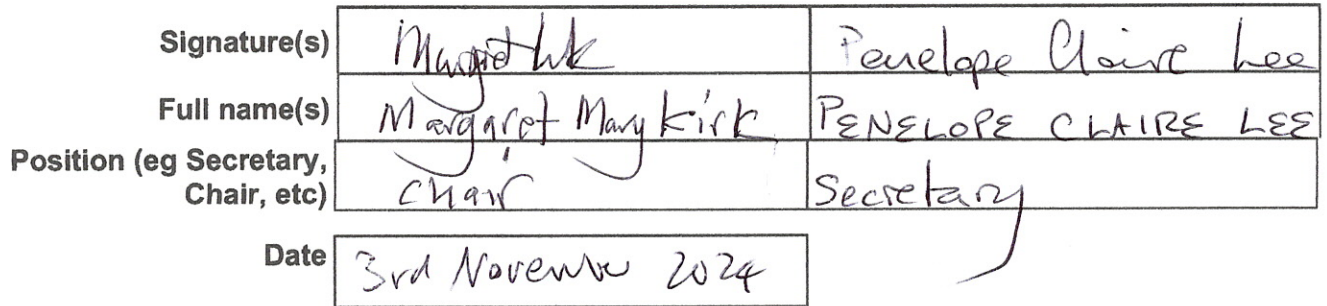 Signature(s) Margaret Kirk Penelope Claire Lee
Full name(s) Margaret Mary Kirk PENELOPE CLAIRE LEE
Position (eg Secretary,
Chair, etc) Chair Secretary
Date 3rd November 2024